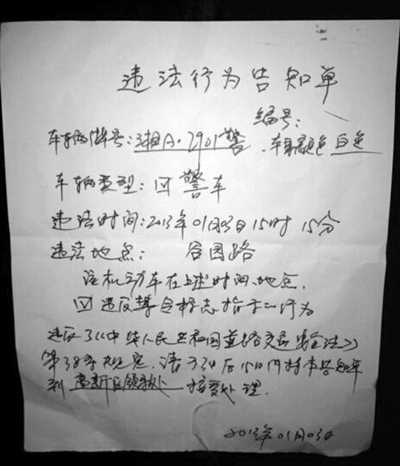 违法行为告知单
编号：
车辆牌号：湘A·2901警 . 车身颜色 白色
车辆类型：☑ 警车
违法时间：2013年01月03日15时15分
违法地点： 谷园路
该机动车在上述时间、地点，
☑ 违反禁令标志指示的行为
违反了《中华人民共和国道路交通安全法》
第38条规定，请于3日后15日内持本告知单
到 接受处理。
2013年01月03日